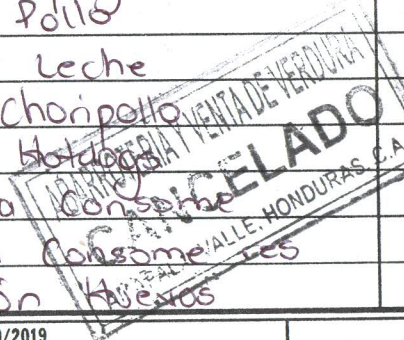 Pollo
Leche
Choripollo
Hotdogs
a Consome
Consome res
ón Huevos
ABARROTERIA Y VENTA DE VERDURA
CANCELADO
VALLE, HONDURAS, C.A
/2019